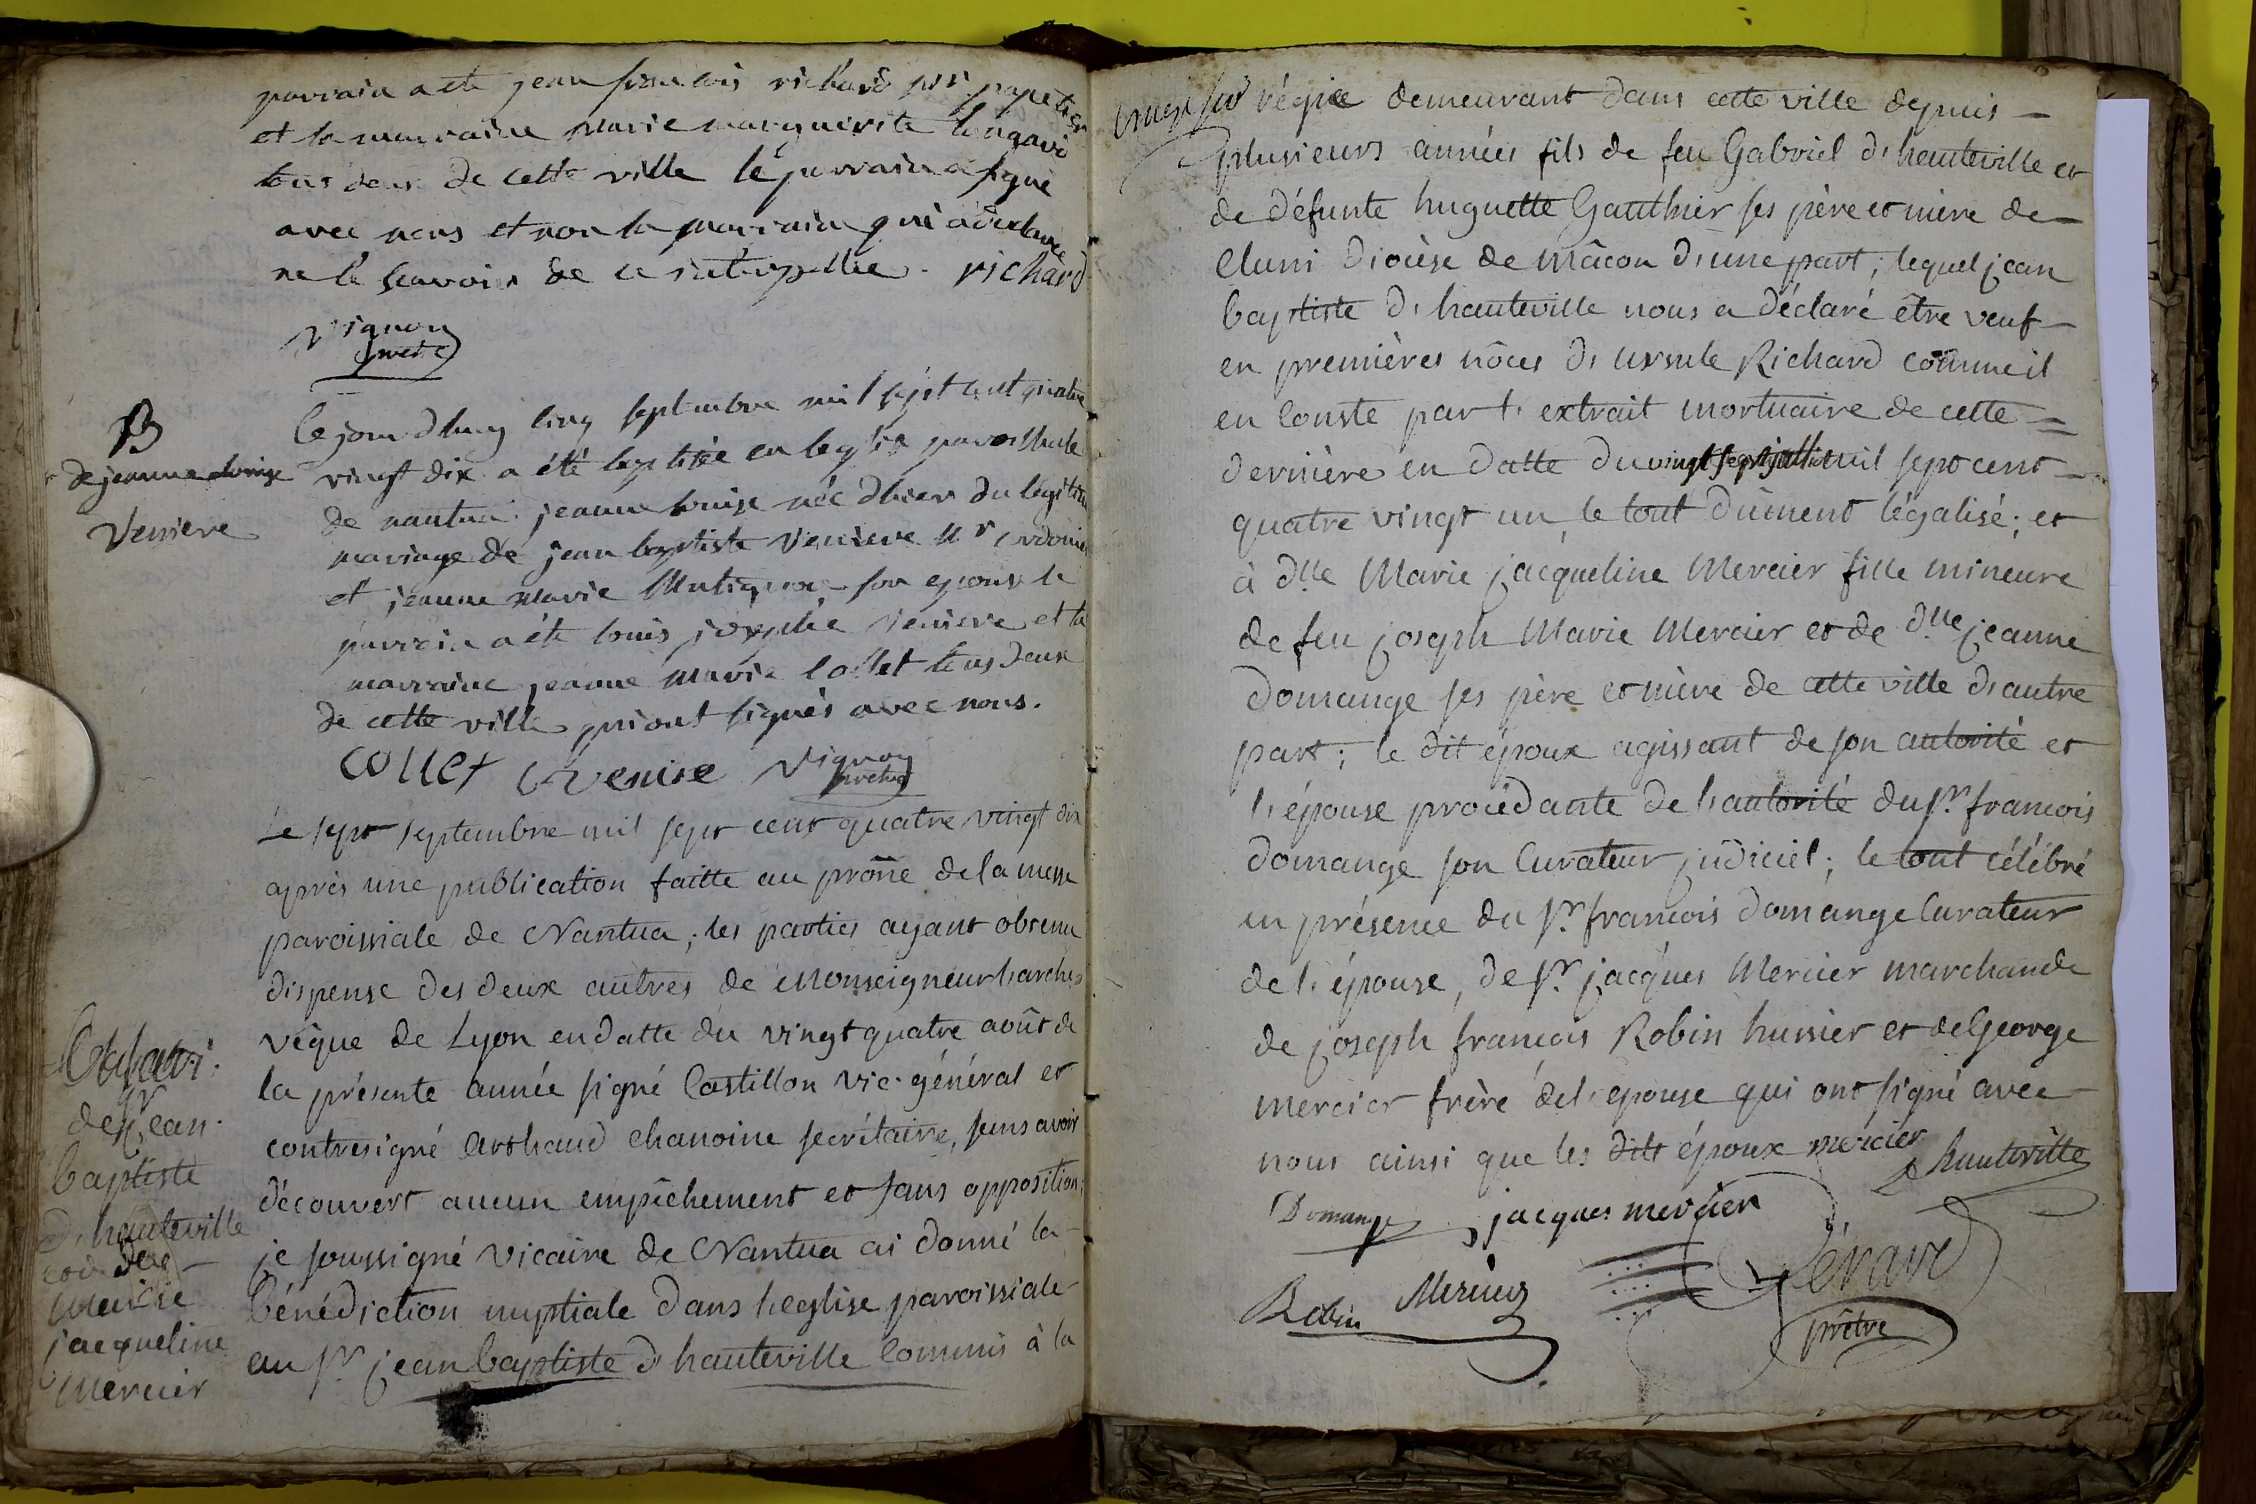 parrain a été jean francois richard papetier
et la marraine marie marguerite
tous deux de cette ville le parrain a signé
avec nous et non la marraine qui a declaré
ne le scavoir de ce interpellée. richard
Vignon
prêtre
B
de jeanne louise
Veniere
Ce jourdhuy cinq septembre mil sept cent quatre
vingt dix a été baptisée en leglise paroissiale
de nantua jeanne louise née dhier du légitime
mariage de jean baptiste Veniere mr cordonier
et jeanne marie son epouse le
parrain a été louis josephe veniere et la
marraine jeanne marie collet tous deux
de cette ville qui ont signés avec nous.
collet Venise Vignon
prêtre
Le sept septembre mil sept cent quatre vingt dix
après une publication faitte au prône de la messe
paroissiale de Nantua; les parties ayant obtenu
dispense des deux autres de Monseigneur l'arche
vêque de Lyon en datte du vingt quatre août de
la présente année signé Castillon vic. général et
contresigné arthaud chanoine secrétaire, sans avoir
découvert aucun empêchement et sans opposition;
je soussigné vicaire de Nantua ai donné la
bénédiction nuptiale dans l'eglise paroissiale
au sr. jean baptiste d'hauteville commis à la
de sr jean
baptiste
d'hauteville
et de dlle
Marie
jacqueline
Mercier
régie demeurant dans cette ville depuis
plusieurs années fils de feu Gabriel d'hauteville et
de défunte huguette Gauthier ses père et mère de
Cluni diocèse de mâcon d'une part; lequel jean
baptiste d'hauteville nous a déclaré être veuf
en premières nôces d'ursule Richard comme il
en conste par l'extrait mortuaire de cette =
dernière en datte du vingt sept juillet mil sept cent
quatre vingt un, le tout dûment légalisé; et
à dlle Marie jacqueline Mercier fille mineure
de feu joseph Marie Mercier et de dlle jeanne
domange ses père et mère de cette ville d'autre
part; le dit époux agissant de son autorité et
l'épouse procédante de l'autorité du sr. francois
domange son curateur judiciel; le tout célébré
en présence du sr. francois domange curateur
de l'épouse, de sr. jacques Mercier marchand
de joseph francois Robin huissier et de George
mercier frère de l'epouse qui ont signé avec
nous ainsi que les dits époux mercier d'hauteville
Domange jacques mercier
Robin Mercier
prêtre